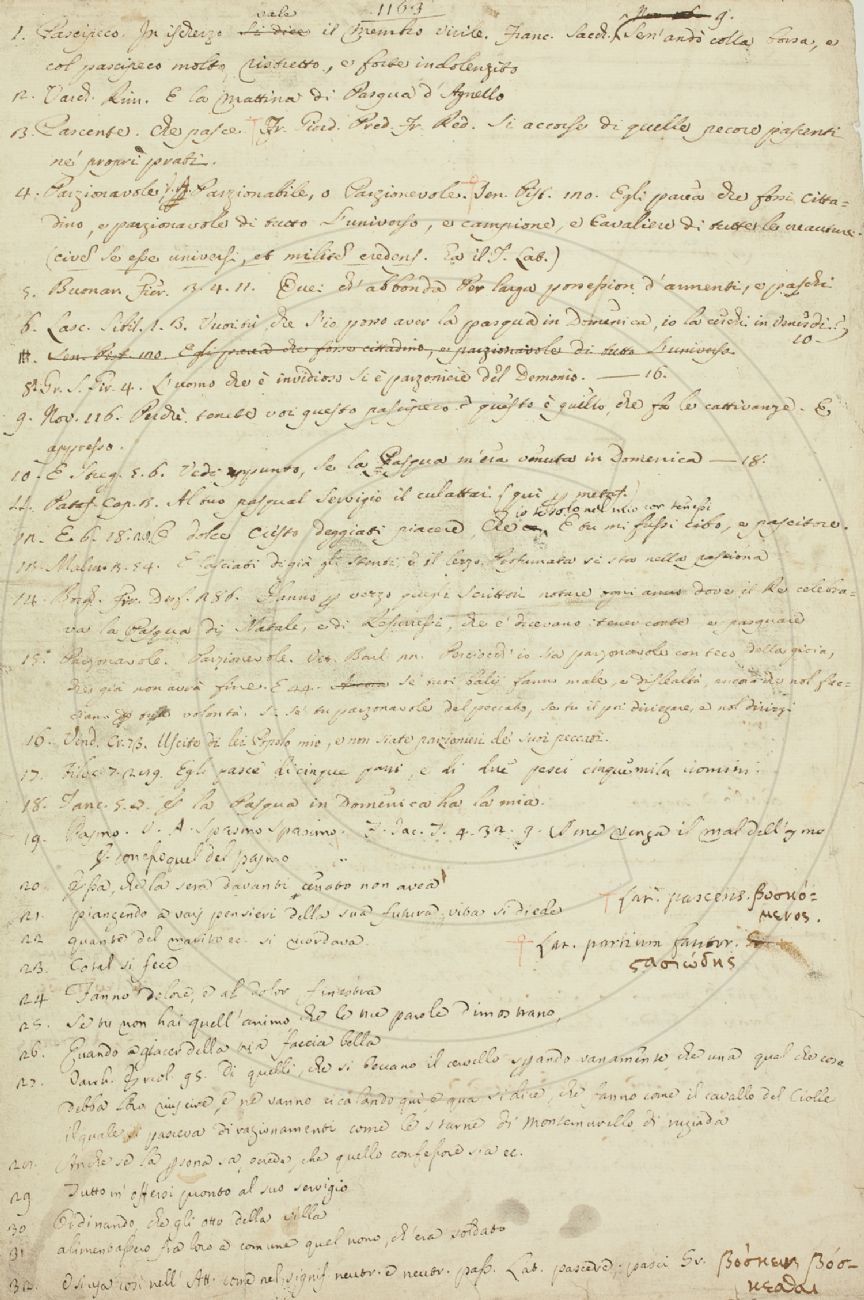 1163
vale
1. Pascipeco. In ischerzo si dice il membro virile. Franc. Sacch. Sen' andò colla borsa, e
col pascipeco molto ristretto, e forte indolenzito
12. Varch. Rim. E la mattina di Pasqua d'Agnello
13. Pascente. Che pasce. † Fr. Giord. Pred. Fr. Red. Si accorse di quelle pecore pascenti
ne' propri prati.
4. Parzionavole, Parzionabile, o Parzionevole. Sen. Pist. 120. Egli parea che fosse citta=
dino, e parzionavole di tutto l'universo, e campione, e Cavaliere di tutte le creature.
(civem se esse universi, et militem credens. Ha il T. Lat.)
5. Buonar. Fier. 3. 4. 11. Que' ch' abbonda Per larga possession d'armenti, e paschi
6. Lasc. Sibil. 1. 3. Vuoi tu, che s'io posso aver la pasqua in Domenica, io la cerchi in Venerdì?
10.
Sen. Pist. 120. Egli parea che fosse cittadino, e parzionavole di tutto l'universo.
8. Gr. S. Gir. 4. L'uomo che è invidioso si è parzoniere del Demonio. — 16.
9. Nov. 116. Perchè tenete voi questo pascipeco? questo è quello, che fa le cattivanze. E
appresso.
10. E Streg. 5. 6. Vedi appunto, se la Pasqua m'era venuta in Domenica — 18.
11. Pataff. Cap. 2. Al tuo pasqual servigio il culattai (qui p metaf.)
io te solo nel mio cor tenessi
12. E. 6. 18. 20. E dolce Cristo deggiati piacere, Che E tu mi fussi cibo, e pascitore.
13. Malm. 2. 54. E lasciati di già gli stenti, e il lezzo, Fortunata si sta nella pasciona
14. Borgh. Fir. Desf. 256. Hanno p vezzo questi scrittori notare ogni anno dove il Re celebra=
va la Pasqua di Natale, e di Resurressi, che e' dicevano tener corte e pasquare
15. Parzonavole. Parzionevole. Vit. Barl. 22. Perciocchè io sia parzonavole con teco della gioia,
che già non avrà fine. E 44. se tuoi balj fanno male, e dislealtà, ancora che nol fac=
cian p tua volontà, si se' tu parzonavole del peccato, se tu il puoi dirizzare, e nol dirizzi
16. Vend. Cr. 73. Uscite di lei Popolo mio, e non siate parzioneri de' suoi peccati.
17. Filoc. 7. 219. Egli pascè di cinque pani, e di due pesci cinquemila uomini.
18. Tanc. 5. 2. p la Pasqua in Domenica ha la mia.
19. Pasmo. V. A. Spasmo Spasimo. F. Jac. T. 4. 32. 9. A me venga il mal dell' asmo
Si conseguel del pasmo
20. Essa, che la sera davanti cenato non avea
21. piangendo a varj pensieri della sua futura vita si diede
22 quante del marito ec. si ricordava
23. Cotal si fece
24 Fanno dolore, e al dolor finestra
25. Se tu non hai quell' animo, che le tue parole dimostrano,
26. Quando a giacer della tua faccia bella
27. Varch. Ercol. 95. Di quelli, che si beccano il cervello sperando vanamente, che una qual che cosa
debba loro riuscire, e ne vanno cicalando qui, e qua si dice, che fanno come il cavallo del Ciolle
il quale si pasceva di ragionamenti come le starne di Montemorello di rugiada
28. Anche se la persona sa, e crede, che quello confessore sia ec.
29 Tutto m' offersi pronto al suo servigio
30 Ordinando, che gli otto della villa
31 alimentassero fra loro a comune quel uomo, ch' era soldato
32. e si usa così nell' Att. come nel signif. neutr. e neutr. pass. Lat. pascere, pasci Gr. βόσκειν βόσ=
κεσθαι
† Lat. pascens. βοσκό=
μενος.
Lat. partium fautor.
στασιώδης